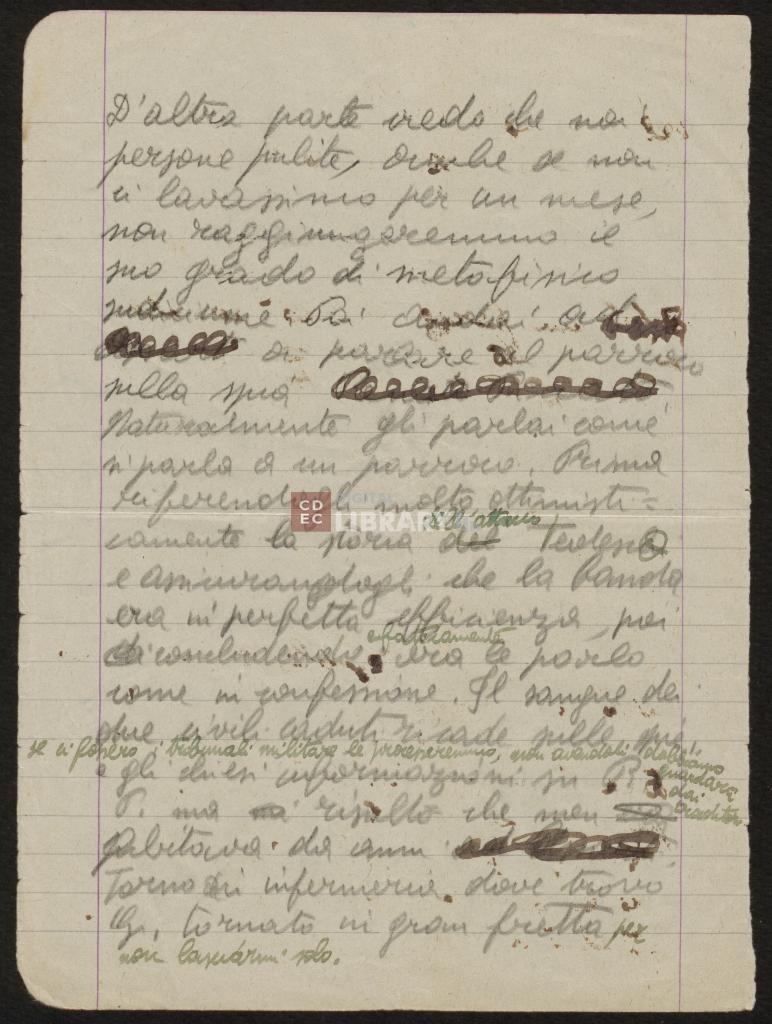 D'altra parte credo che noi
persone pulite, anche se non
ci lavassimo per un mese,
non raggiungeremmo il
suo grado di metafisico
sudiciume. Poi andai ad
a parlare al parroco
sulla spia
Naturalmente gli parlai come
si parla a un parroco. Prima
riferendogli molto ottimisti=
dell'attacco
camente la storia del Tedesco
e assicurandogli che la banda
era in perfetta efficienza, poi
affannosamente
concludendo: ora le parlo
come in confessione. Il sangue dei
due civili caduti ricade sulle spie
se ci fossero i tribunali militari le processeremmo, non avendoli dobbiamo
guardarci
dai
traditori
e gli chiesi informazioni su P.
P. ma risultò che non
abitava da anni
Torno in infermeria dove trovo
G. tornato in gran fretta per
non lasciarmi solo.
CDEC
DIGITAL
LIBRARY